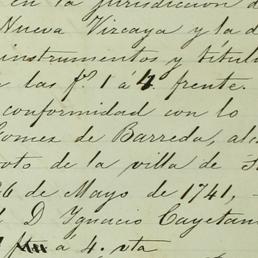 en la jurisdiccion d
Nueva Vizcaya y la d
instrumentos y títul
a las fs. 1 á 4 frente.
conformidad con lo
Gomez de Barreda, alc
oto de la villa de
26 de Mayo de 1741, -
D. Ignacio Cayetan
á 4. vta